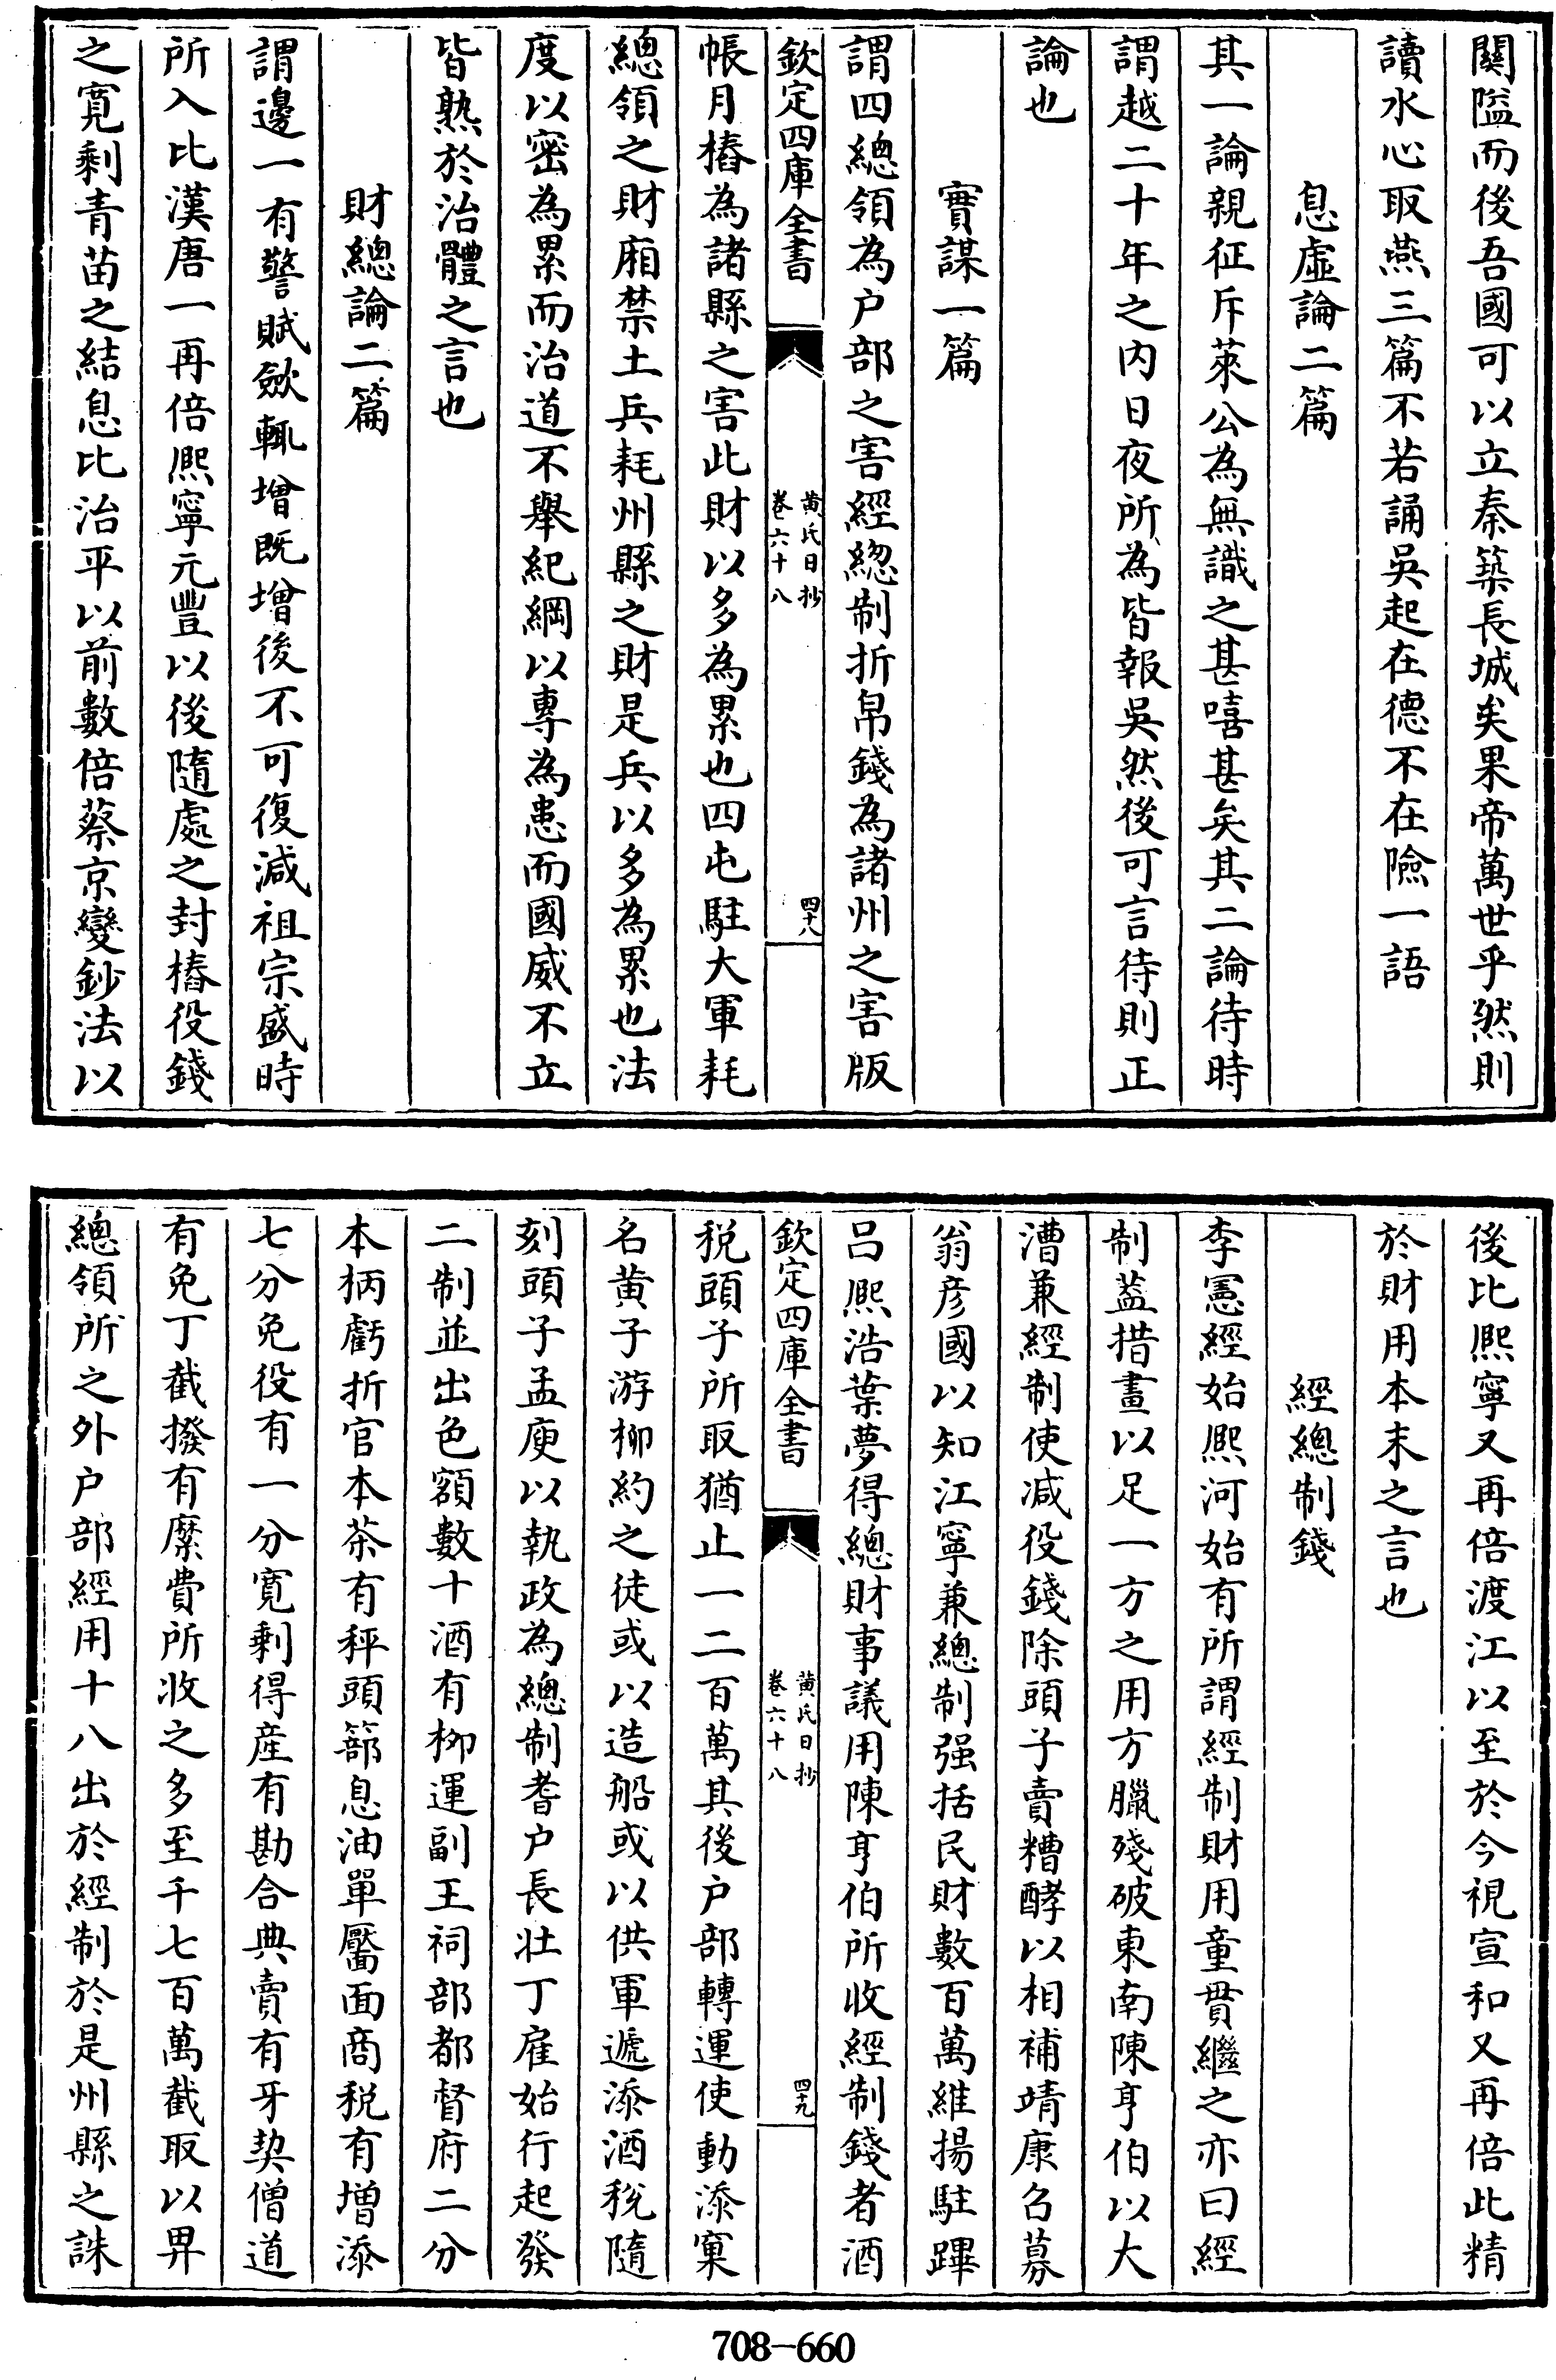 關隘而後吾國可以立秦築長城矣果帝萬世乎然則
讀水心取燕三篇不若誦吳起在德不在險一語
息虛論二篇
其一論親征斥萊公為無識之甚嘻甚矣其二論待時
謂越二十年之内日夜所為皆報吳然後可言待則正
論也
實謀一篇
謂四總領為户部之害經緫制折帛錢為諸州之害版
欽定四庫全書
黄氏日抄
卷六十八
四十八
帳月樁為諸縣之害此財以多為累也四屯駐大軍耗
總領之財廂禁土兵耗州縣之財是兵以多為累也法
度以密為累而治道不舉紀綱以專為患而國威不立
皆熟於治體之言也
財總論二篇
謂邊一有警賦斂輒增既增後不可復減祖宗盛時
所入比漢唐一再倍熙寧元豐以後隨處之封樁役錢
之寛剩青苗之結息比治平以前數倍蔡京變鈔法以
後比熙寧又再倍渡江以至於今視宣和又再倍此精
於財用本末之言也
經總制錢
李憲經始熙河始有所謂經制財用童貫繼之亦曰經
制蓋措畫以足一方之用方臘殘破東南陳亨伯以大
漕兼經制使減役錢除頭子賣糟酵以相補靖康召募
翁彦國以知江寧兼總制强括民財數百萬維揚駐蹕
吕熙浩葉夢得總財事議用陳亨伯所收經制錢者酒
欽定四庫全書
黄氏日抄
卷六十八
四十九
税頭子所取猶止一二百萬其後户部轉運使動添窠
名黄子游柳約之徒或以造船或以供軍遞添酒税隨
刻頭子孟庾以執政為總制耆户長壯丁雇始行起發
二制並出色額數十酒有柳運副王祠部都督府二分
本柄虧折官本茶有秤頭篰息油單靨面商税有增添
七分免役有一分寛剩得産有勘合典賣有牙契僧道
有免丁截撥有縻費所收之多至千七百萬截取以畀
總領所之外户部經用十八出於經制於是州縣之誅
708-660